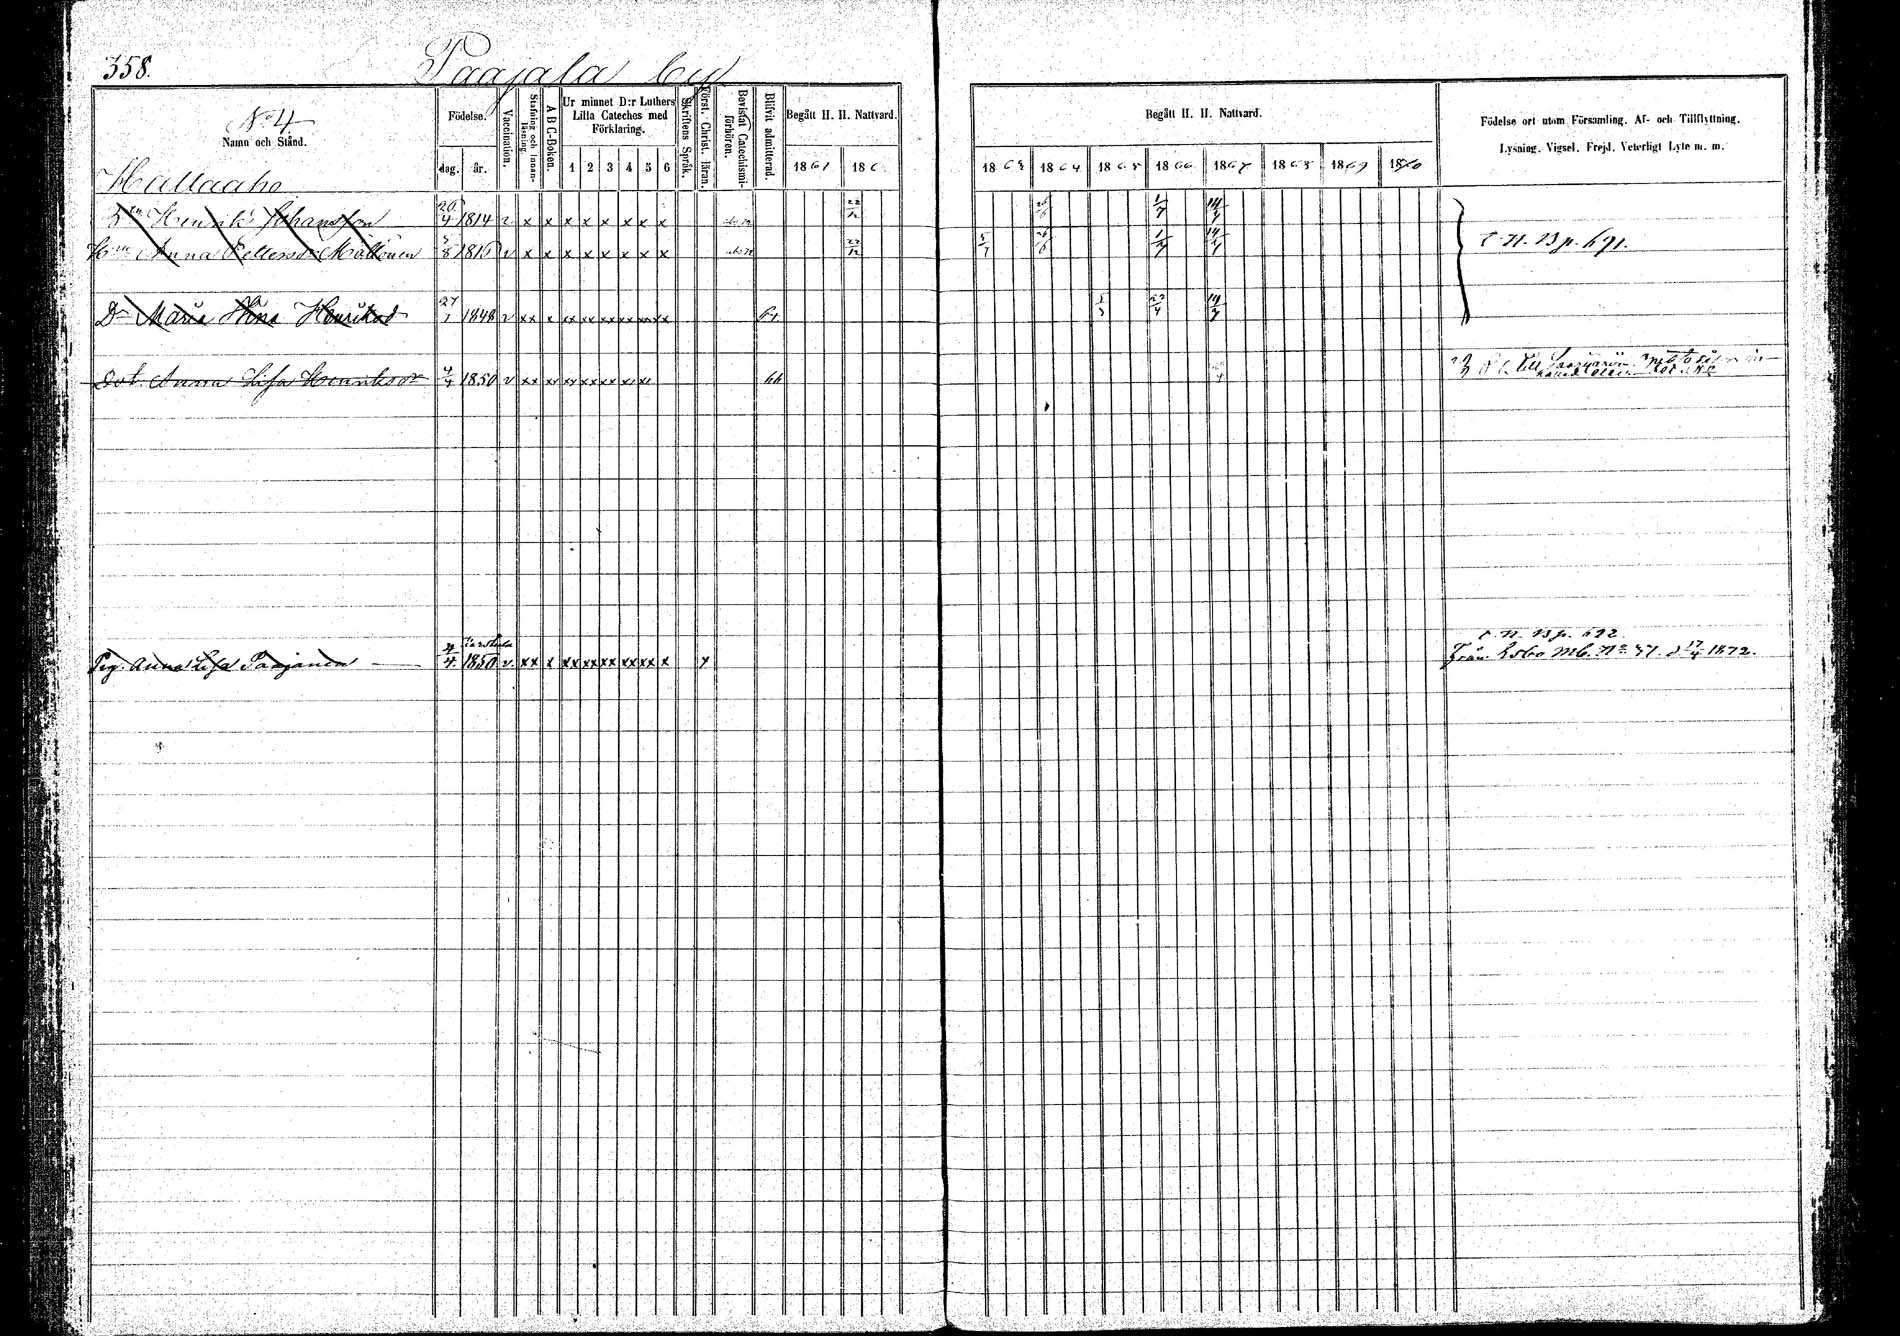 358.
Paajala by
No 4
Namn och Stånd.
Födelse.
dag. år.
Vaccination.
Stafning och Innanläsning.
A B C-Boken.
Ur minnet D:r Luthers Lilla Cateches med Förklaring.
1 2 3 4 5 6
Skriftens Språk.
Först. Christ. läran.
Bevistat Catechismiförhören.
Blifvit admitterad.
Begått H. H. Nattvard.
1861 186
Begått H. H. Nattvard.
1863 1864 1865 1866 1867 1868 1869 1870
Födelse ort utom Församling. Af- och Tillflyttning.
Lysning. Vigsel. Frejd. Veterligt Lyte m. m.
Hallaaho
Henrik Johansson 20/4 1814 v x x x x x x x x 22/12 26/6 1/7 14/7
Anna Pettersdr 1815 v x x x x x x x x 22/12 5/7 26/6 1/7 14/7 p. 691.
Dr Maria Henriksd 27/1 1848 v xx x xx xx xx xx xx xx 64 14/7
Dot. Anna Lisa Henriksdr 4/4 1850 v xx xx xx xx xx x x 66
p. 692.
Pig. Anna Lisa Paajanen 4/4 1850 v. xx x xx xx xx xx xx x Från Esbo Mb. No 57. d 17/4 1872.